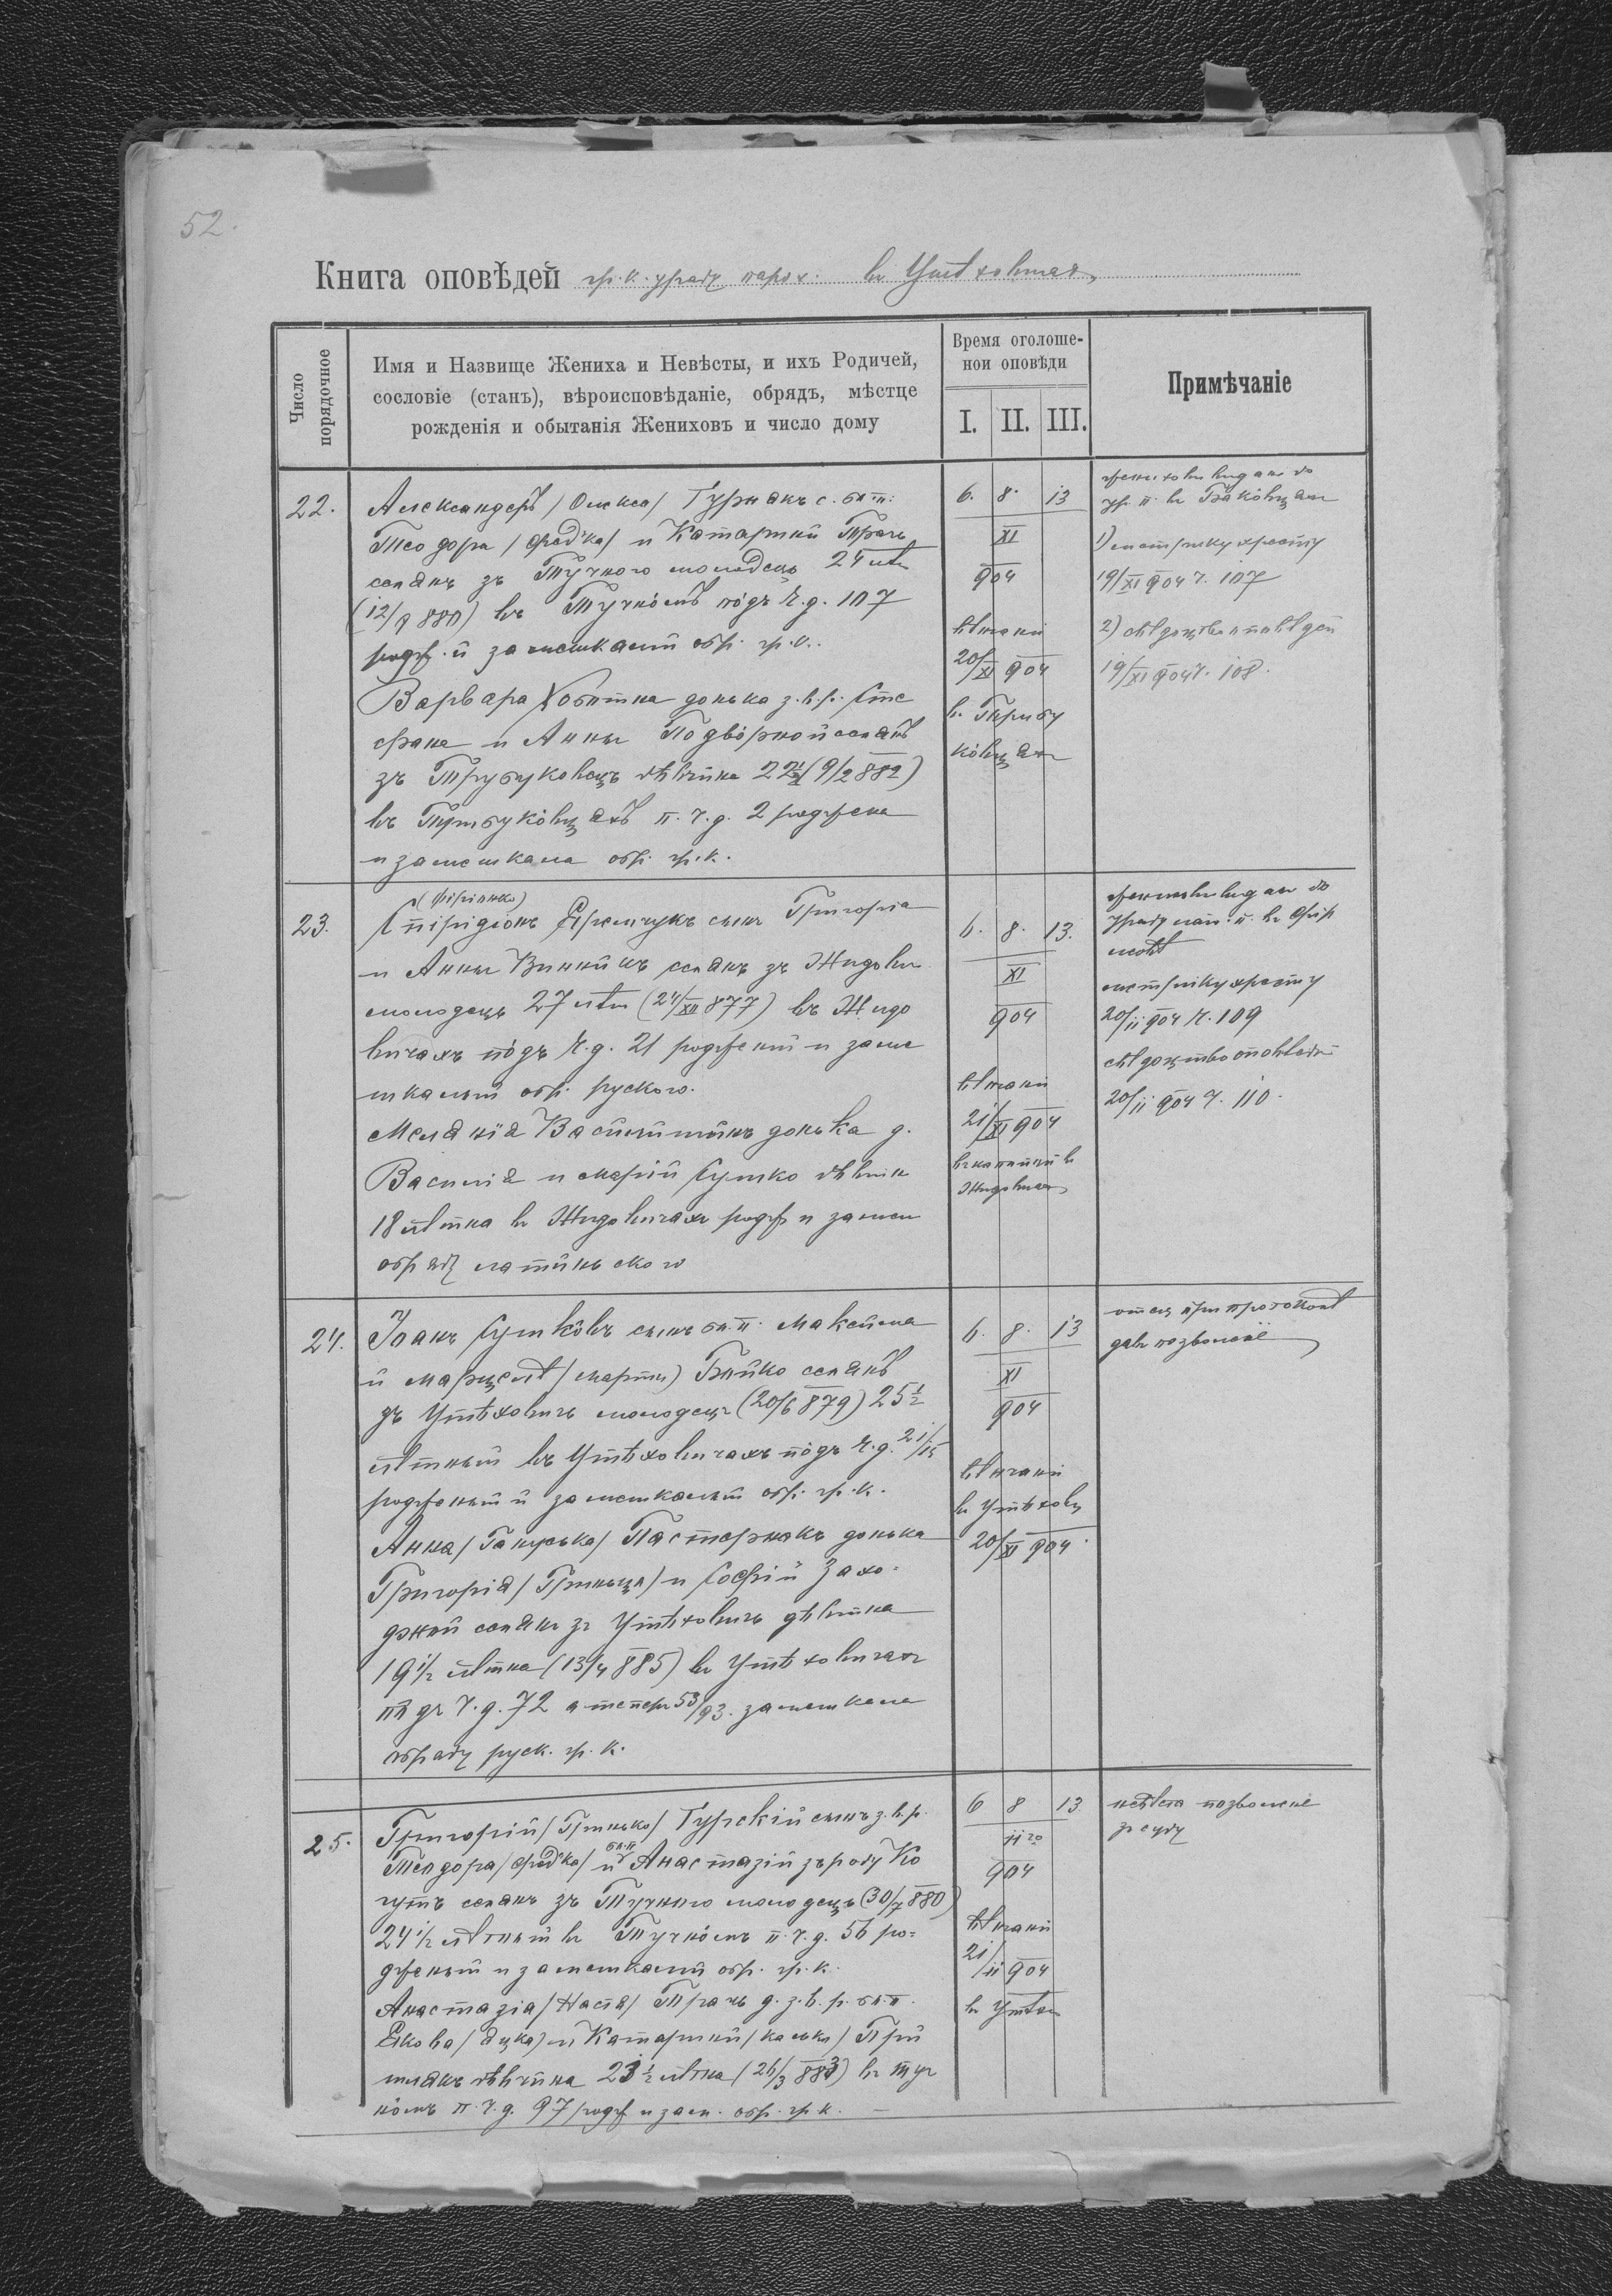 52.
Книга оповѣдей гр. к. уряду парох. въ Утѣховичах
Число порядочное
Имя и Назвище Жениха и Невѣсты, и ихъ Родичей,
сословіе (станъ), вѣроисповѣданіе, обрядъ, мѣстце
рожденія и обытанія Жениховъ и число дому
Время оголоше-
нои оповѣди
I. II. III.
Примѣчаніе
22.
Александеръ /Олекса/ Гурнакъ с. бл. п.
Теодора /Федька/ и Катарины Трачъ
селянъ зъ Тучного молодецъ 24 лѣт
(12/9 880) въ Тучнôмъ пôдъ ч. д. 107
родж. и замешкалый обр. гр. к.
Варвара Хобитна донька з. в. р. Сте
фана и Анны Подвôрной селянъ
зъ Трибуковець дѣвчина 22 1/2 (9/2 882)
въ Трибукôвцяхъ п. ч. д. 2 роджена
и замешкала обр. гр. к.
6. 8. 13
XI
904
вѣнчаній
20/XI 904
в Трибу
кôвцях
1) метрику хресту
19/XI 904 ч. 107
2) свѣдоцтво оповѣдей
19/XI 904 ч. 108.
23.
Спірідіонъ Яремчукъ сынъ Григорія
и Анны Винникъ селянъ зъ Жидович
молодецъ 27 лѣт (24/XII 877) въ Жидо
вичахъ пôдъ ч. д. 21 родженый и заме
шкалый обр. руского.
Меланія Василишинъ донька д.
Василія и Маріи Сушко дѣвчин
18 лѣтна в Жидовичах родж и замеш
обряд латиньского
6. 8. 13.
XI
904
вѣнчаній
21/XI 904
в каплици в
Жидовичах
метрику хресту
20/11 904 ч. 109
свѣдоцтво оповѣдей
20/11 904 ч. 110.
24.
Іоанъ Сушкôвъ сынъ бл. п. Максима
и Марцелѣ /Марты/ Бойко селянъ
зъ Утѣховичъ молодецъ (20/6 879) 25 1/2
лѣтный въ Утѣховичахъ пôдъ ч. д. 21/15
родженый и замешкалый обр. гр. к.
Анна /Гануська/ Пастернакъ донька
Григорія /Гринька/ и Софіи Захо-
джой селянъ зъ Утѣховичъ дѣвчина
19 1/2 лѣтна (13/4 885) въ Утѣховичах
пôдъ ч. д. 72 а теперь 53/93. замешкала
обряду руск. гр. к.
6. 8. 13
XI
904
вѣнчаній
в Утѣхов
20/XI 904
отец при протоколѣ
дав позволенє
25.
Григорій /Гринько/ Гурскій сынъ з. в. р.
Теодора /Федька/ и бл. п. Анастазіи зъ роду Ко
гутъ селянъ зъ Тучного молодецъ (30/7 880)
24 1/2 лѣтный въ Тучнôмъ п. ч. д. 56 ро-
дженый и замешкалый обр. гр. к.
Анастазія /Настя/ Трачъ д. з. в. р. бл. п.
Якова /Яцка/ и Катарины /Каськи/ При
шлякъ дѣвчина 21 1/2 лѣтна (26/3 883) въ Туч
нôмъ п. ч. д. 97 родж и зам. обр. гр. к.
6 8 13
11го
904
вѣнчаній
21/11 904
в Утѣхов
невѣста позволенє
з суду